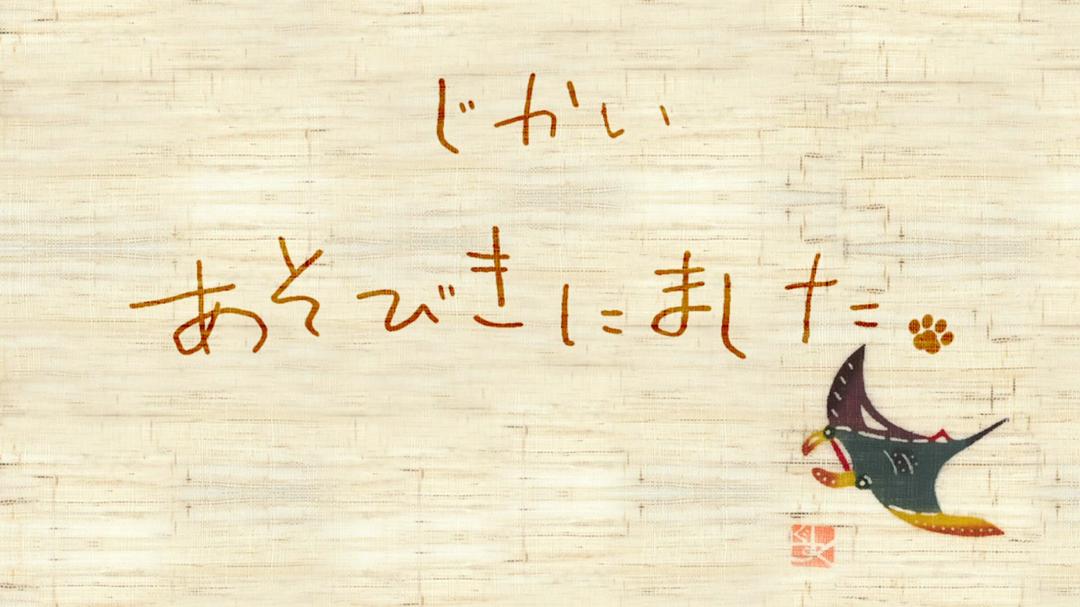 じかい
あそびきにました